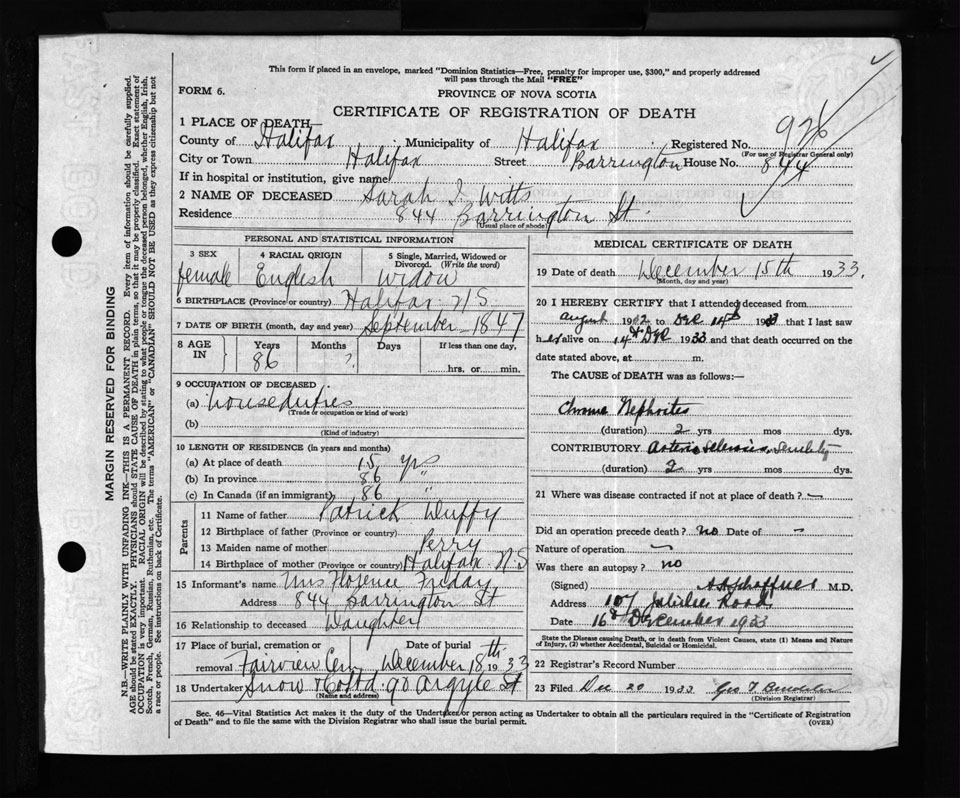 This form if placed in an envelope, marked "Dominion Statistics—Free, penalty for improper use, $300," and properly addressed
will pass through the Mail "FREE"
FORM 6.
PROVINCE OF NOVA SCOTIA
CERTIFICATE OF REGISTRATION OF DEATH
1 PLACE OF DEATH
County of Halifax Municipality of Halifax Registered No. 926
(For use of Registrar General only)
City or Town Halifax Street Barrington House No. 844
If in hospital or institution, give name
2 NAME OF DECEASED Sarah J. Witts
Residence 844 Barrington St.
(Usual place of abode)
PERSONAL AND STATISTICAL INFORMATION
3 SEX 4 RACIAL ORIGIN 5 Single, Married, Widowed or
Divorced. (Write the word)
female English Widow
6 BIRTHPLACE (Province or country) Halifax N S
7 DATE OF BIRTH (month, day and year) September 1847
8 AGE IN Years Months Days If less than one day,
86 ? hrs. or min.
9 OCCUPATION OF DECEASED
(a) housduties
(Trade or occupation or kind of work)
(b)
(Kind of industry)
10 LENGTH OF RESIDENCE (in years and months)
(a) At place of death 15 yrs
(b) In province 86 "
(c) In Canada (if an immigrant) 86 "
Parents
11 Name of father Patrick Duffy
12 Birthplace of father (Province or country)
13 Maiden name of mother Perry
14 Birthplace of mother (Province or country) Halifax N.S
15 Informant's name Mrs Florence Friday
Address 844 Barrington St
16 Relationship to deceased Daughter
17 Place of burial, cremation or Date of burial
removal Fairview Cem. December 18th 1933
18 Undertaker Snow & Co Ltd. 90 Argyle St
(Name and address)
MEDICAL CERTIFICATE OF DEATH
19 Date of death December 15th 1933.
(Month, day and year)
20 I HEREBY CERTIFY that I attended deceased from
August 1932 to Dec 14th 1933 that I last saw
her alive on 14th Dec 1933 and that death occurred on the
date stated above, at m.
The CAUSE of DEATH was as follows:—
Chronic Nephrites
(duration) 2 yrs mos dys.
CONTRIBUTORY Arterio Sclerosis Senility
(duration) 2 yrs mos dys.
21 Where was disease contracted if not at place of death? —
Did an operation precede death? no Date of —
Nature of operation —
Was there an autopsy? no
(Signed) Schaffner M.D.
Address 107 Jubilee Road
Date 16th December 1933
State the Disease causing Death, or in death from Violent Causes, state (1) Means and Nature
of Injury, (2) whether Accidental, Suicidal or Homicidal.
22 Registrar's Record Number
23 Filed Dec 20 1933 Geo T
(Division Registrar)
Sec. 46—Vital Statistics Act makes it the duty of the Undertaker or person acting as Undertaker to obtain all the particulars required in the "Certificate of Registration
of Death" and to file the same with the Division Registrar who shall issue the burial permit. (OVER)
MARGIN RESERVED FOR BINDING
N.B.—WRITE PLAINLY WITH UNFADING INK—THIS IS A PERMANENT RECORD. Every item of information should be carefully supplied.
AGE should be stated EXACTLY. PHYSICIANS should STATE CAUSE OF DEATH in plain terms, so that it may be properly classified. Exact statement of
OCCUPATION is very important. RACIAL ORIGIN will be described by stating to what people or tongue the deceased person belonged, whether English, Irish,
Scotch, French, German, Russian, Ruthenian, etc. The terms "AMERICAN" or "CANADIAN" SHOULD NOT BE USED as they express citizenship but not
a race or people. See instructions on back of Certificate.